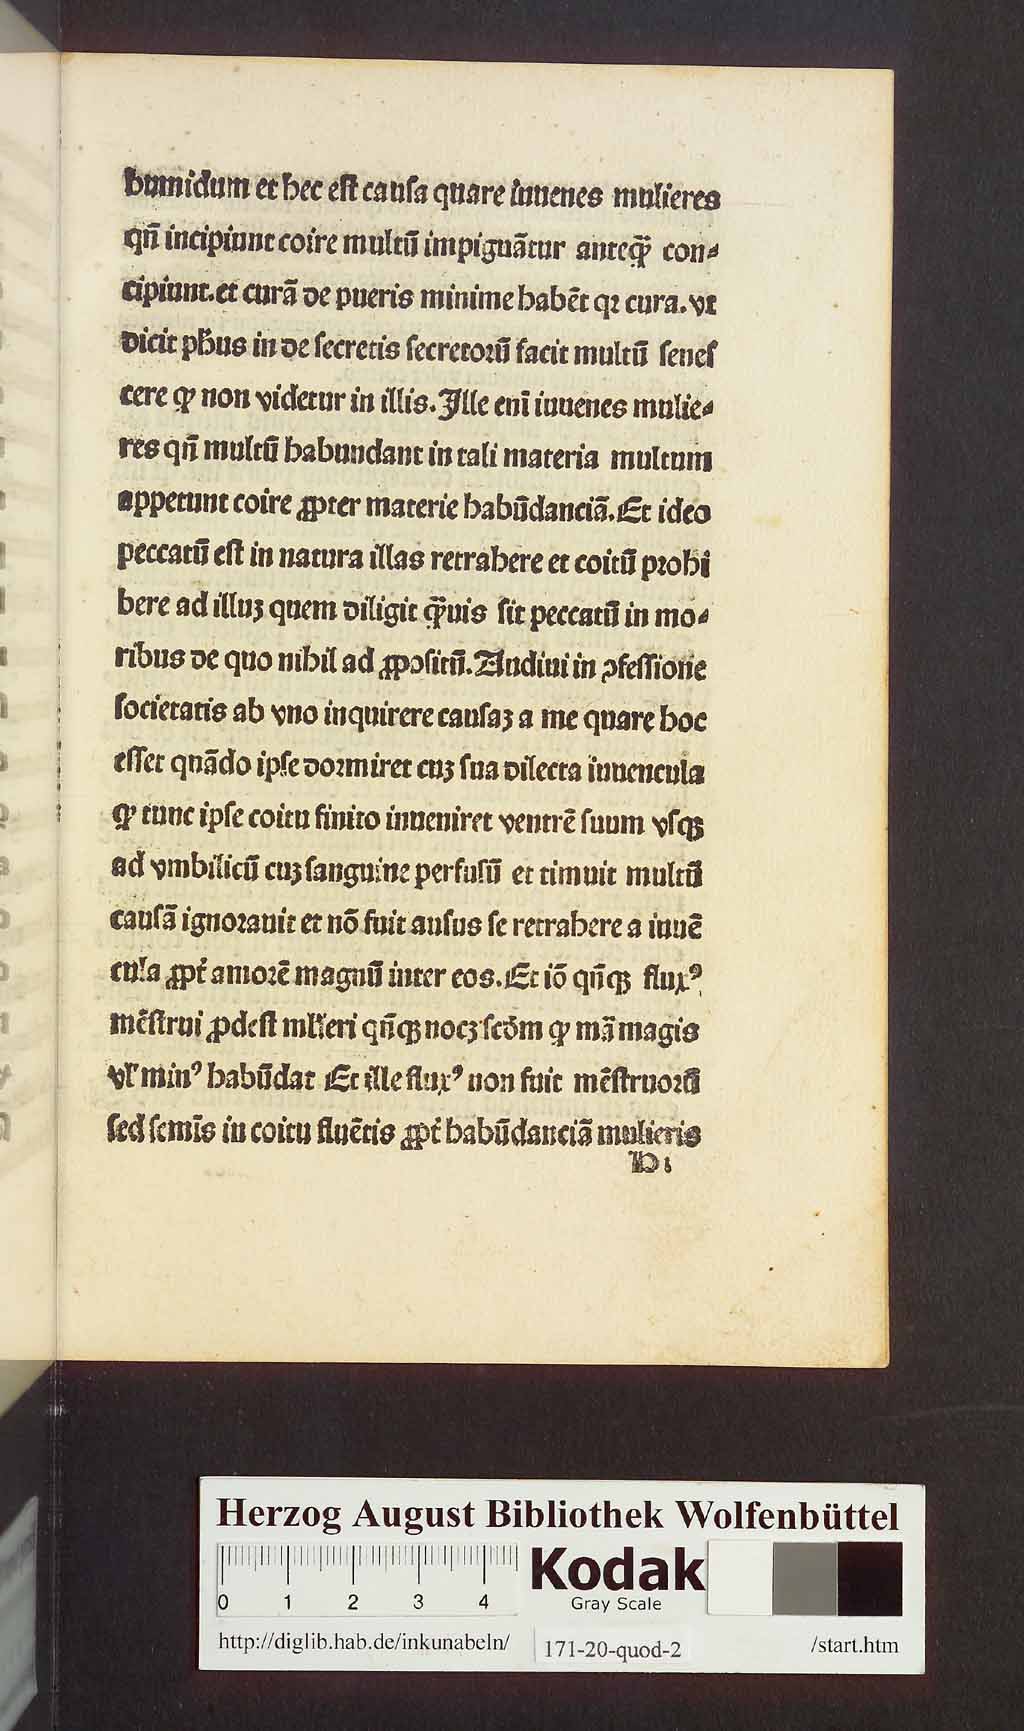 humidum et hec eſt cauſa quare iuuenes mulieres
qñ incipiunt coire multū impiguãtur anteq̃ con⸗
cipiunt. et curã de pueris minime habẽt qꝛ cura. vt
dicit ph̃us in de ſecretis ſecretoꝛū facit multū ſeneſ
cere ꝙ non videtur in illis. Ille eni̅ iuuenes mulie⸗
res qñ multū habundant in tali materia multum
appetunt coire ꝓpter materie habūdanciã. Et ideo
peccatū eſt in natura illas retrahere et coitū pꝛohi
bere ad illuꝫ quem diligit q̃uis ſit peccatū in mo⸗
ribus de quo nihil ad ꝓpoſitū. Audiui in ꝯfeſſione
ſocietatis ab vno inquirere cauſaꝫ a me quare hoc
eſſet quãdo ipſe doꝛmiret cuꝫ ſua dilecta iuuencula
ꝙ tunc ipſe coitu finito inueniret ventrē ſuum vſqꝫ
ad vmbilicū cuꝫ ſanguine perfuſū et timuit multū
cauſã ignoꝛauit et nō fuit auſus ſe retrahere a iuuē
cula ꝓpť amoꝛē magnū inter eos. Et iō qñqꝫ fluxꝰ
mēſtrui ꝓdeſt ml̓ieri qñqꝫ nocꝫ ſcd̄m ꝙ mã magis
vl̓ minꝰ habūdat Et ille fluxꝰ non fuit mēſtruoꝛū
ſed ſemīs in coitu fluētis ꝓpť habūdanciã mulieris
D i
Herzog August Bibliothek Wolfenbüttel
0 1 2 3 4
Kodak
Gray Scale
http://diglib.hab.de/inkunabeln/ 171-20-quod-2 /start.htm